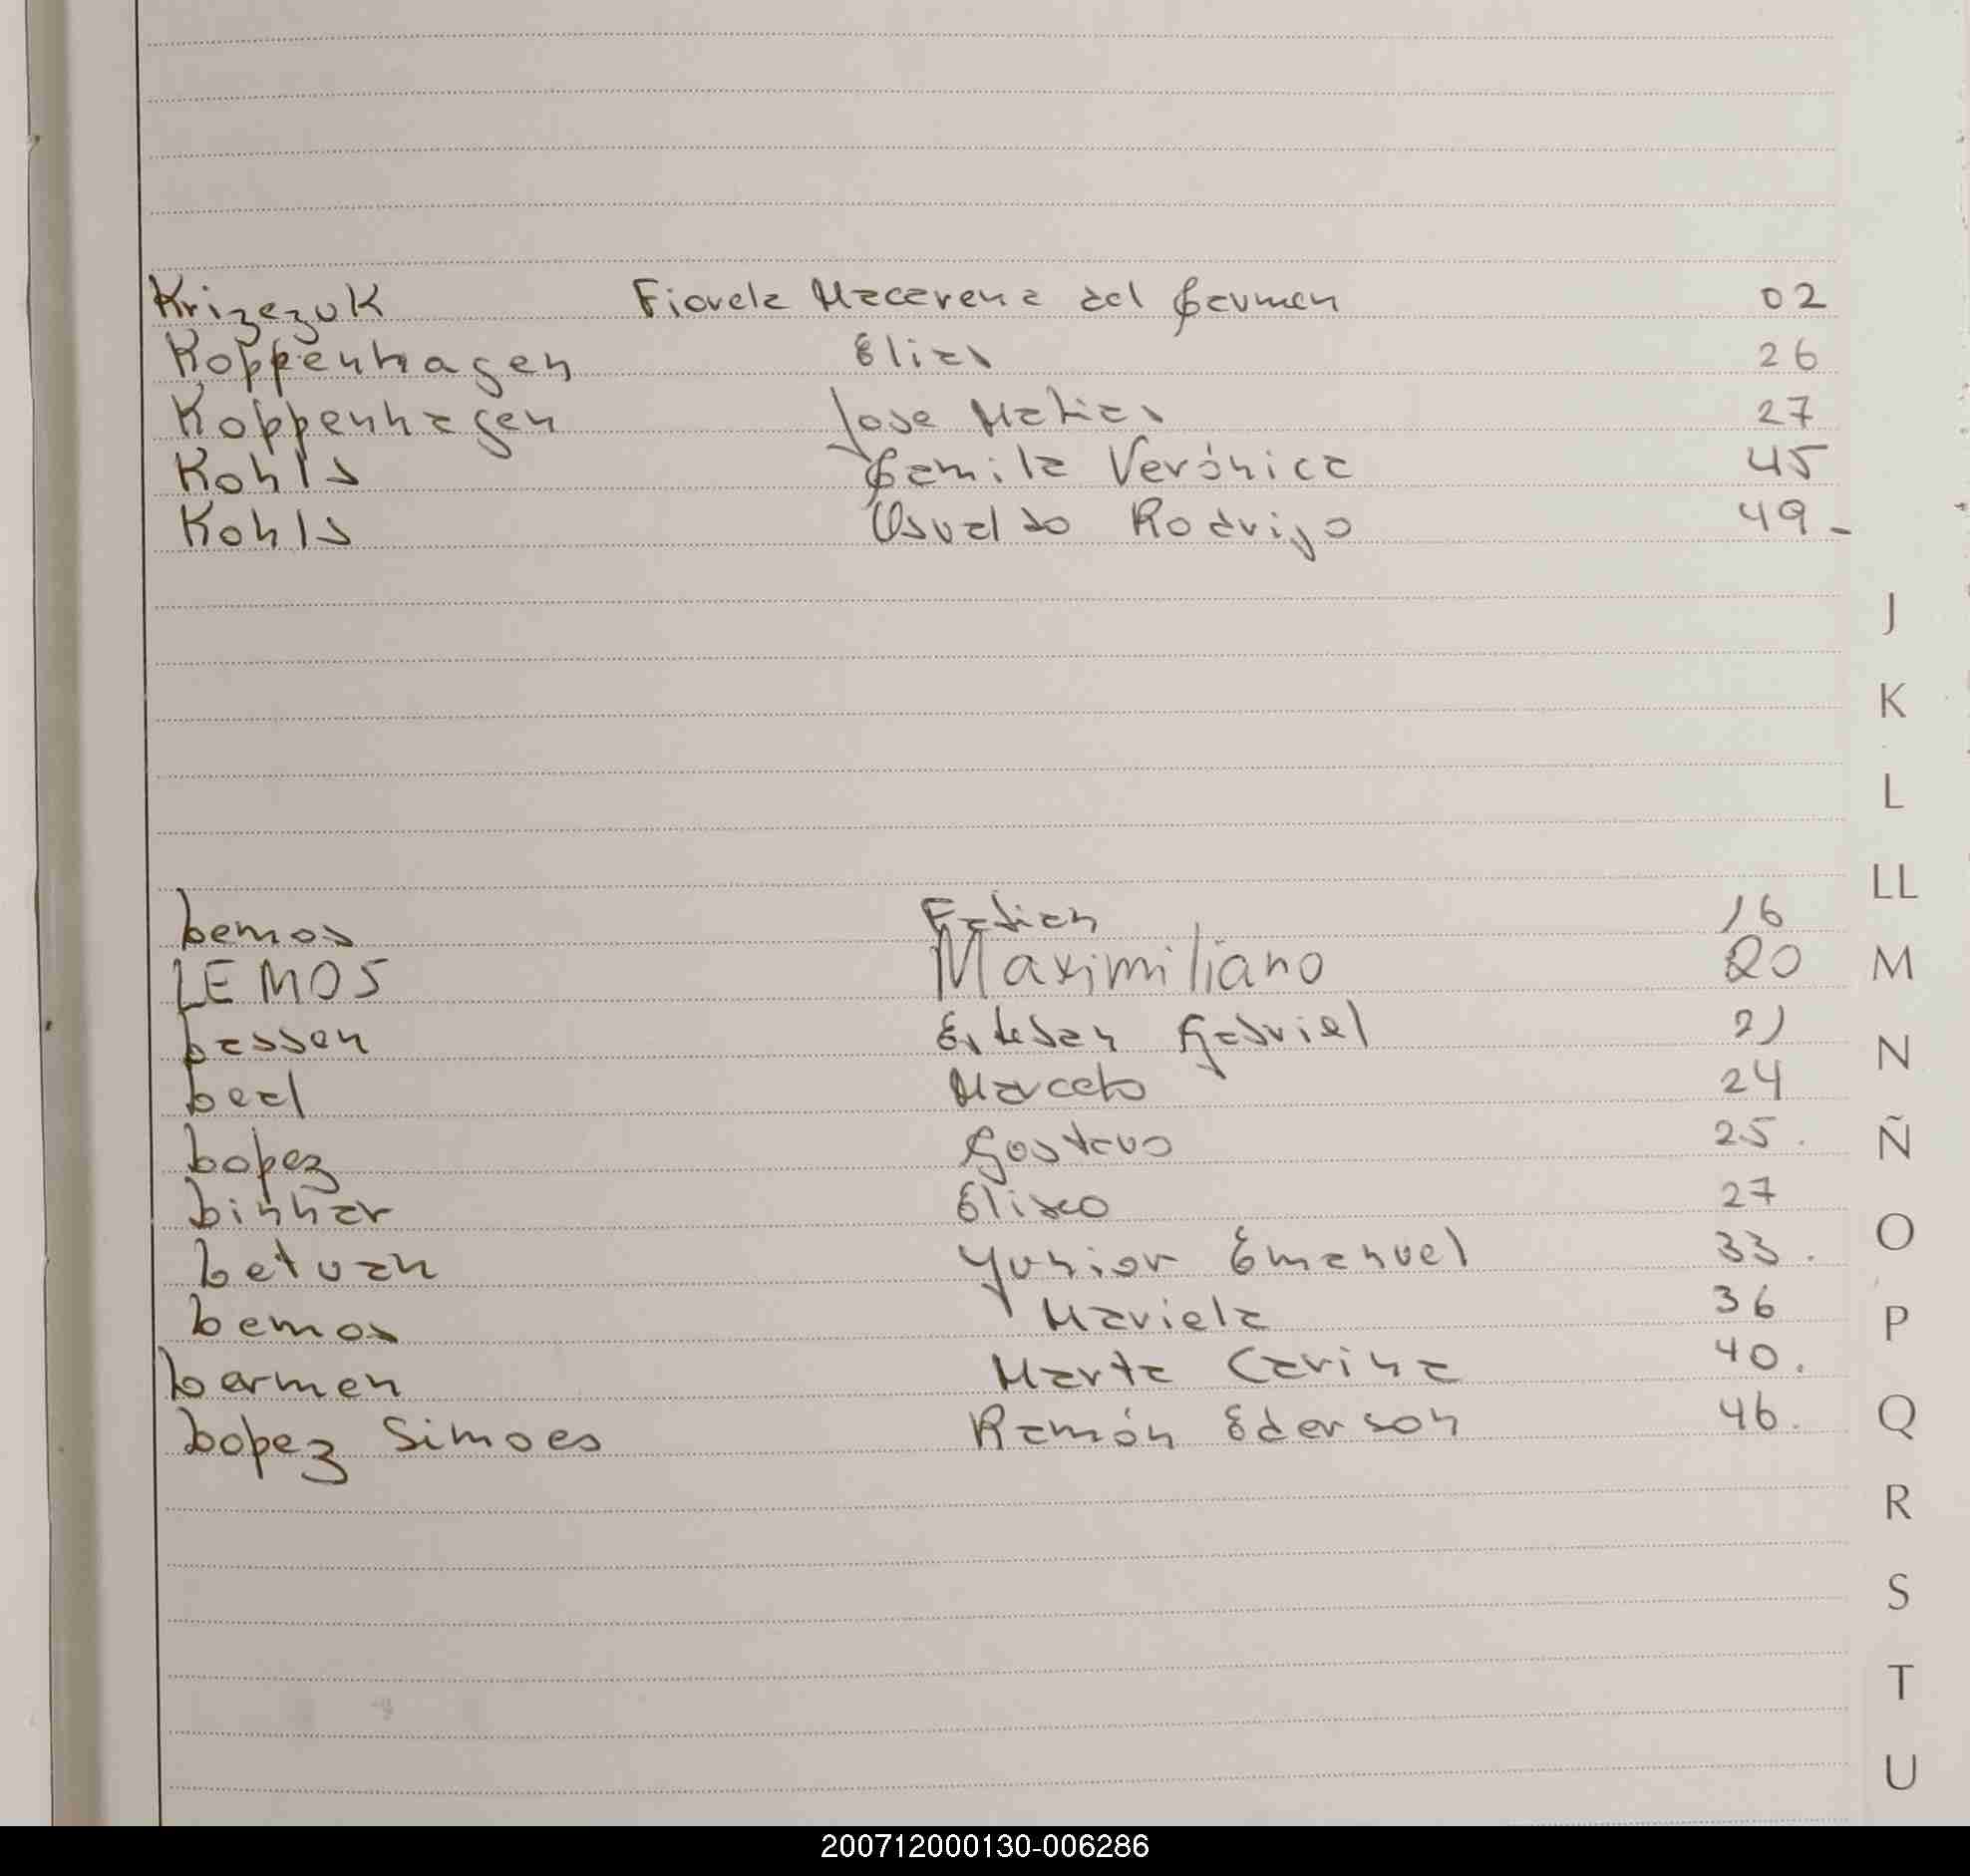 Krizezuk Fiorela Macarena del Carmen 02
Koppenhagen Elias 26
Koppenhagen Jose Matias 27
Kohls Camila Verónica 45
Kohls Osvaldo Rodrigo 49-
J
K
L
LL
Lemos Fabian 16
LEMOS Maximiliano 20
M
Lassen Esteban Gabriel 21
N
Leal Marcelo 24
Lopez Gustavo 25.
Ñ
Linhar Eliseo 27
O
Letuan Yunior Emanuel 33.
Lemos Mariela 36
P
Larmen Marta Carina 40.
Lopez Simoes Ramón Ederson 46.
Q
R
S
T
U
200712000130-006286